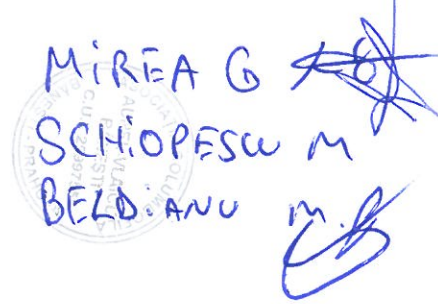 MiREA G
SCHiOPESCU M
BELDiANU M.